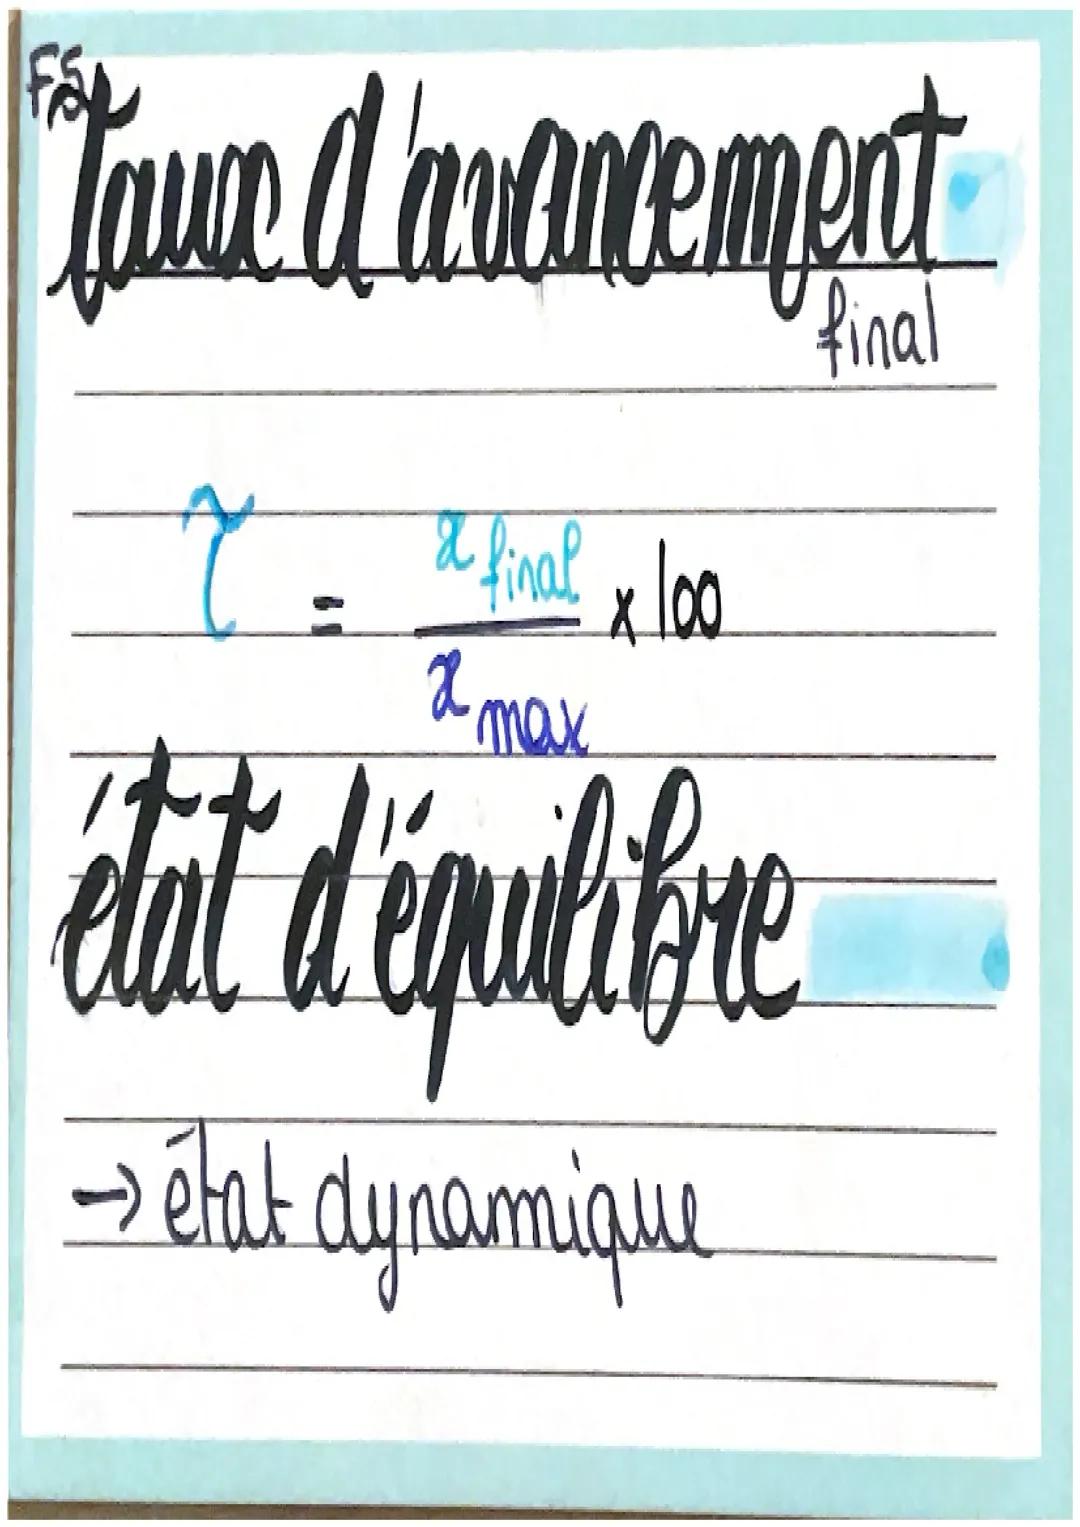 F5
Taux d'avancement
final
τ = x final / x max × 100
état d'équilibre
→ état dynamique